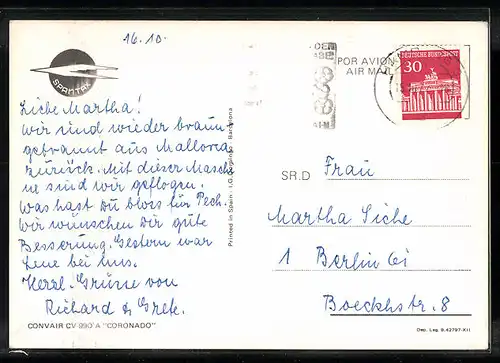 16.10.
SPANTAX
Liebe Martha!
Wir sind wieder braun
gebrannt aus Mallorca
zurück. Mit dieser Masch
ne sind wir geflogen.
Was hast Du bloss für Pech.
Wir wünschen Dir gute
Besserung. Gestern war
Lene bei uns.
Herzl. Grüsse von
Richard & Grete.
CONVAIR CV 990 A "CORONADO"
Printed in Spain - Barcelona
POR AVION
AIR MAIL
DEUTSCHE BUNDESPOST
30
SR.D
Frau
Martha Siche
1 Berlin 61
Boeckhstr. 8
Dep. Leg. B.42797-XII